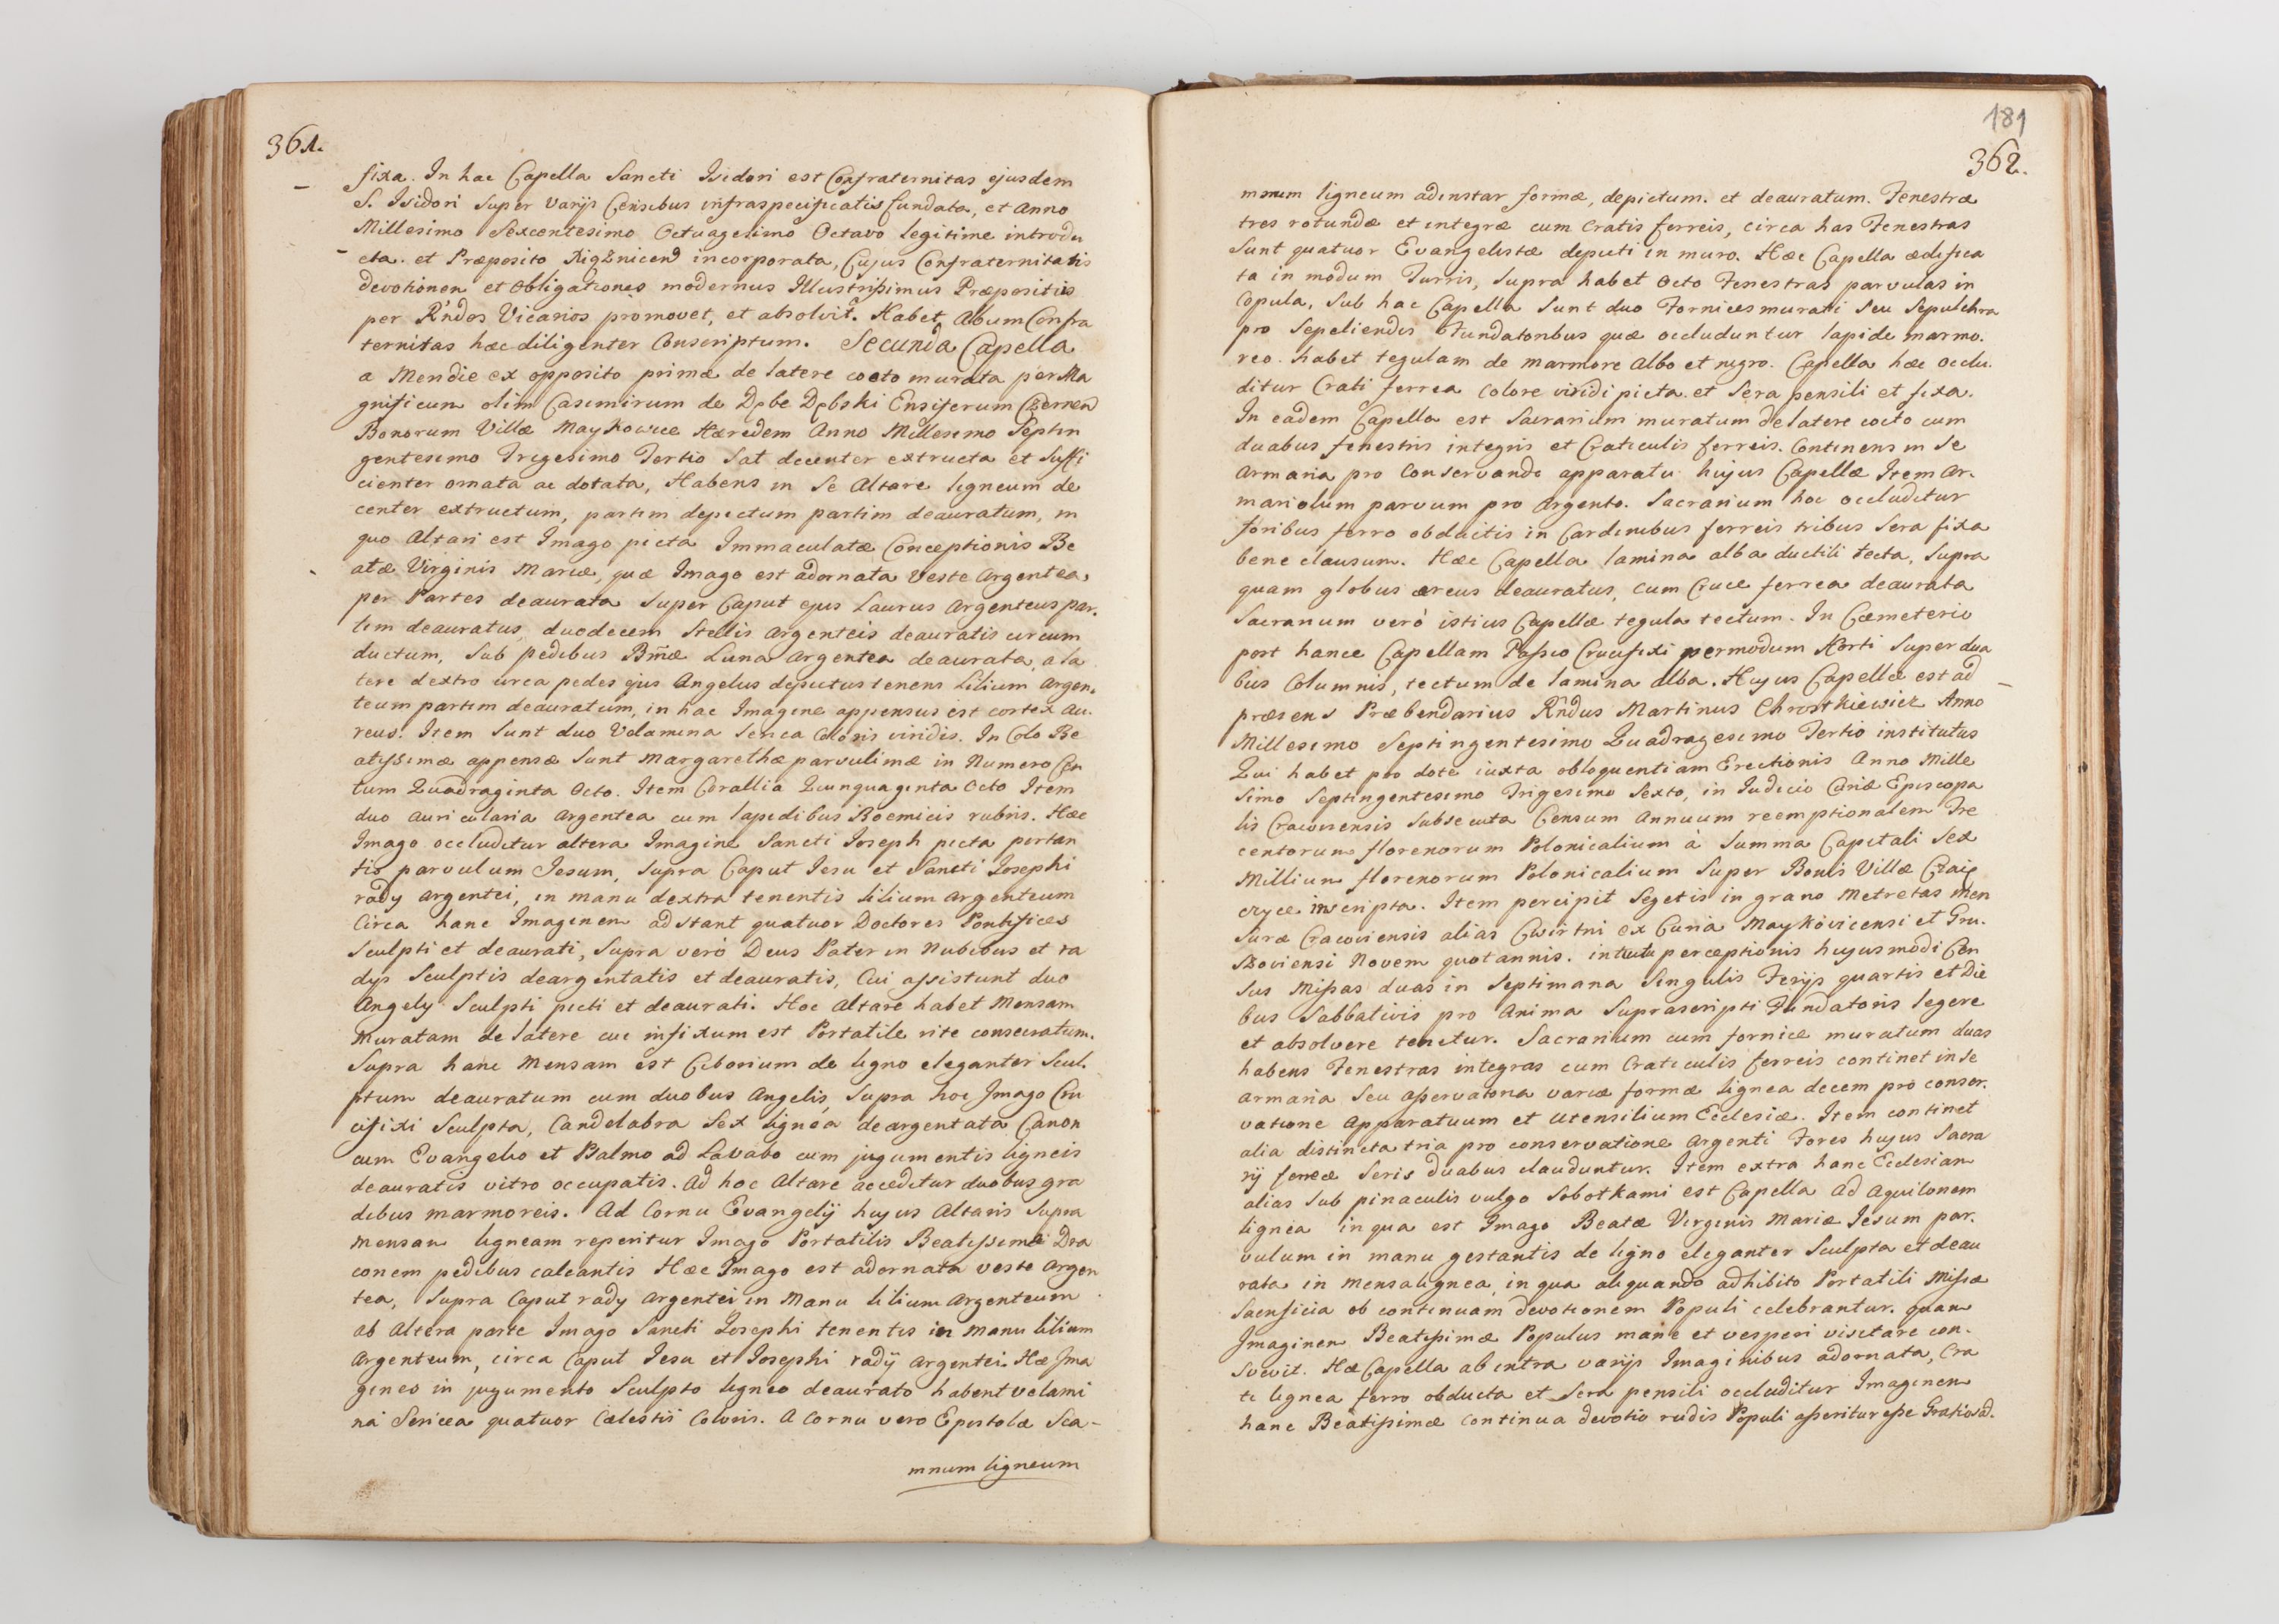 361.
fixa. In hac Capella Sancti Isidori est Confraternitas ejusdem
S. Isidori super varijs Censibus infraspecificatis fundata, et Anno
Millesimo Sexcentesimo Octuagesimo Octavo legitime introdu
cta. et Præposito Xigznicen incorporata, Cujus Confraternitatis
devotionem et Obligationes modernus Illustrissimus Præpositus
per Rndos Vicarios promovet, et absolvit. Habet Album Confra
ternitas hæc diligenter Conscriptum. Secunda Capella
a Meridie ex opposito primæ de latere cocto murata per Ma
gnificum olim Casimirum de Dębe Dębski Ensiferum Czernen
Bonorum Villæ Maykowice Hæredem Anno Millesimo Septin
gentesimo Trigesimo Tertio Sat decenter extructa et Suffi
cienter ornata ac dotata, Habens in Se Altare ligneum de
center extructum, partim depictum partim deauratum, in
quo Altari est Imago picta Immaculatæ Conceptionis Be
atæ Virginis Mariæ, quæ Imago est adornata Veste Argentea,
per Partes deaurata Super Caput ejus Laurus Argenteus par.
tim deauratus, duodecem Stellis Argenteis deauratis circum
ductum, Sub pedibus Bmæ Luna Argentea deaurata, a la
tere dextro circa pedes ejus Angelus depictus tenens Lilium Argen.
teum partim deauratum, in hac Imagine appensus est cortex Au.
reus. Item Sunt duo Velamina Serica Coloris viridis. In Colo Be
atissimæ appensæ Sunt Margarethæ parvulimæ in Numero Cen
tum Quadraginta Octo. Item Corallia Quinquaginta Octo Item
duo Auricularia Argentea cum lapidibus Boemicis rubris. Hæc
Imago occluditur altera Imagine Sancti Joseph picta portan
tis parvulum Jesum, Supra Caput Jesu et Sancti Josephi
radij Argentei, in manu dextra tenentis lilium Argenteum
Circa hanc Imaginem adstant quatuor Doctores Pontifices
Sculpti et deaurati, Supra verò Deus Pater in Nubibus et ra
dijs Sculptis deargentatis et deauratis, Cui assistunt duo
Angely Sculpti picti et deaurati. Hoc Altare habet Mensam
Muratam de latere cui infixum est Portatile rite consecratum.
Supra hanc Mensam est Ciborium de ligno eleganter Scul.
ptum deauratum cum duobus Angelis, Supra hoc Imago Cru
cifixi Sculpta, Candelabra Sex lignea deargentata Canon
cum Evangelio et Psalmo ad Lavabo cum jugumentis ligneis
deauratis vitro occupatis. Ad hoc Altare acceditur duobus gra
dibus marmoreis. Ad Cornu Evangelij hujus Altaris Supra
Mensam ligneam reperitur Imago Portatilis Beatissimæ Dra
conem pedibus calcantis Hæc Imago est adornata veste Argen
tea, Supra Caput radij Argentei in Manu lilium Argenteum
ab Altera parte Imago Sancti Josephi tenentis in Manu lilium
Argenteum, circa Caput Jesu et Josephi radij Argentei. Hæ Ima
gines in jugumento Sculpto ligneo deaurato habent velami
na Sericea quatuor Cælestii Coloris. A Cornu vero Epistolæ Sca-
mnum ligneum
181
362.
mnum ligneum adinstar formæ, depictum. et deauratum. Fenestræ
tres rotundæ et integræ cum Cratis ferreis, circa has Fenestras
Sunt quatuor Evangelistæ depicti in muro. Hæc Capella ædifica
ta in modum Turris, Supra habet Octo Fenestras parvulas in
Copula, Sub hac Capella Sunt duo Fornices murati Seu Sepulchra
pro Sepeliendis Fundatoribus quæ occluduntur lapide marmo.
reo. habet tegulam de marmore Albo et nigro. Capella hæc occlu.
ditur Crati ferrea Colore viridi picta. et Sera pensili et fixa.
In eadem Capella est Sacrarium muratum de latere cocto cum
duabus fenestris integris et Craticulis ferreis. Continens in Se
Armaria pro Conservando apparatu hujus Capellæ Item Ar.
mariolum parvum pro Argento. Sacrarium hoc occluditur
foribus ferro obductis in Cardinibus ferreis tribus Sera fixa
bene clausum. Hæc Capella lamina alba ductili tecta, Supra
quam globus æreus deauratus, cum Cruce ferrea deaurata
Sacrarium verò istius Capellæ tegula tectum. In Cæmeterio
post hance Capellam Passio Crucifixi permodum Horti Super dua
bus Columnis, tectum de lamina alba. Hujus Capellæ est ad
præsens Præbendarius Rndus Martinus Chrostkiewicz Anno
Millesimo Septingentesimo Quadragesimo Tertio institutus
Qui habet pro dote iuxta obloquentiam Erectionis Anno Mille
simo Septingentesimo Trigesimo Sexto, in Judicio Curiæ Episcopa
lis Cracoviensis Subsecuta Censum Annuum reemptionalem Tre
centorum florenorum Polonicalium à Summa Capitali Sex
Millium florenorum Polonicalium Super Bonis Villæ Ctaię
czyce inscripta. Item percipit Segetis in grano Metretas Men
suræ Cracoviensis alias Cwirtni ex Curia Maykovicensi et Gru.
szoviensi Novem quotannis. intuitu perceptionis hujusmodi Cen
sus Missas duas in Septimana Singulis Ferijs quartis et Die
bus Sabbativis pro Anima Suprascripti Fundatoris legere
et absolvere tenetur. Sacrarium cum fornice muratum duas
habens Fenestras integras cum Craticulis ferreis continet in Se
Armaria Seu Asservatoria variæ formæ lignea decem pro conser.
vatione Apparatuum et Utensilium Ecclesiæ. Item continet
alia distincta tria pro conservatione Argenti Fores hujus Sacra
rij ferreæ Seris duabus clauduntur. Item extra hanc Ecclesiam
alias Sub pinaculis vulgo Sobotkami est Capella ad Aquilonem
lignea in qua est Imago Beatæ Virginis Mariæ Jesum par.
vulum in manu gestantis de ligno eleganter Sculpta et deau
rata in Mensa lignea, in qua aliquando adhibito Portatili Missæ
Sacrificia ob continuam devotionem Populi celebrantur. quam
Imaginem Beatissimæ Populus mane et vesperi visitare con.
suevit. Hæ Capella ab intra varijs Imaginibus adornata, Cra
te lignea ferro obducta et Sera pensili occluditur Imaginem
hanc Beatissimæ Continua devotio rudis Populi asseritur esse Gratiosa.